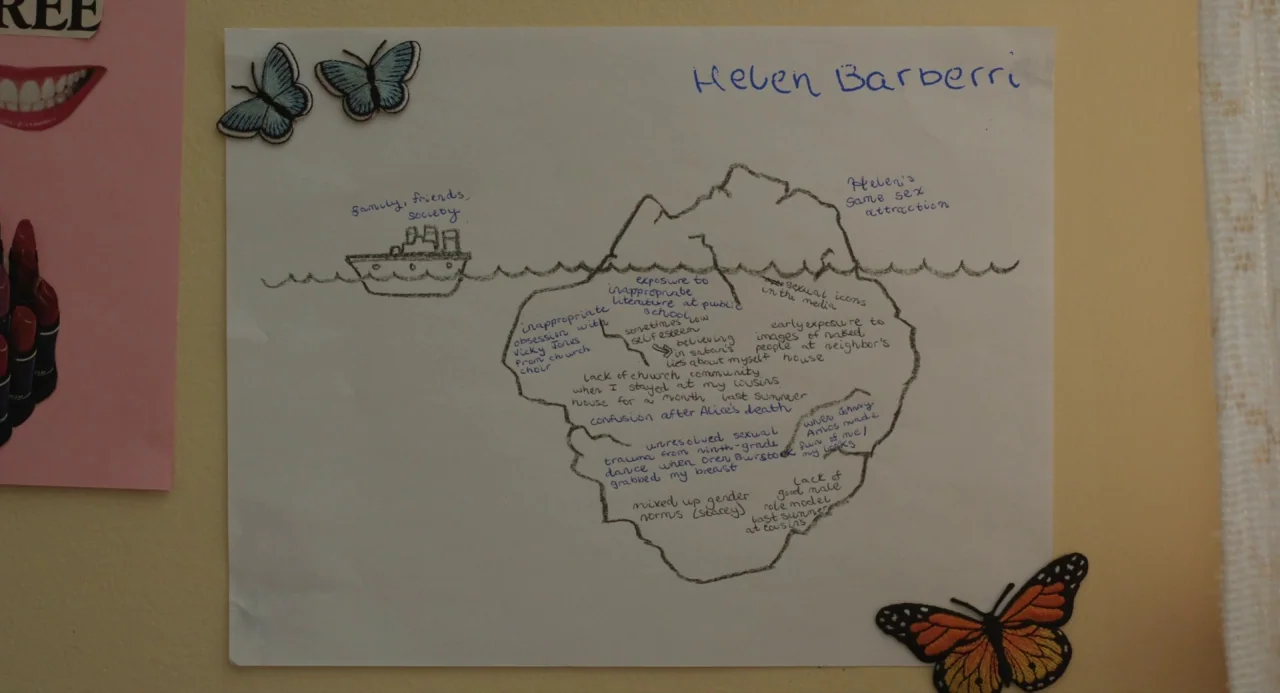 REE
Helen Barberri
family, friends,
society
Helen's
same sex
attraction
exposure to
inappropriate
literature at public
school
sexual icons
in the media
inappropriate
obsession with
Vicky Jones
from church
choir
sometimes low
self esteem
believing
in satan's
lies about myself
early exposure to
images of naked
people at neighbor's
house
lack of church community
when I stayed at my cousins
house for a month last summer
confusion after Alice's death
unresolved sexual
trauma from ninth-grade
dance when Oren Burstock
grabbed my breast
when
Amos made
fun of me/
my looks
mixed up gender
norms (stacey)
Lack of
good male
role model
last summer
at cousins